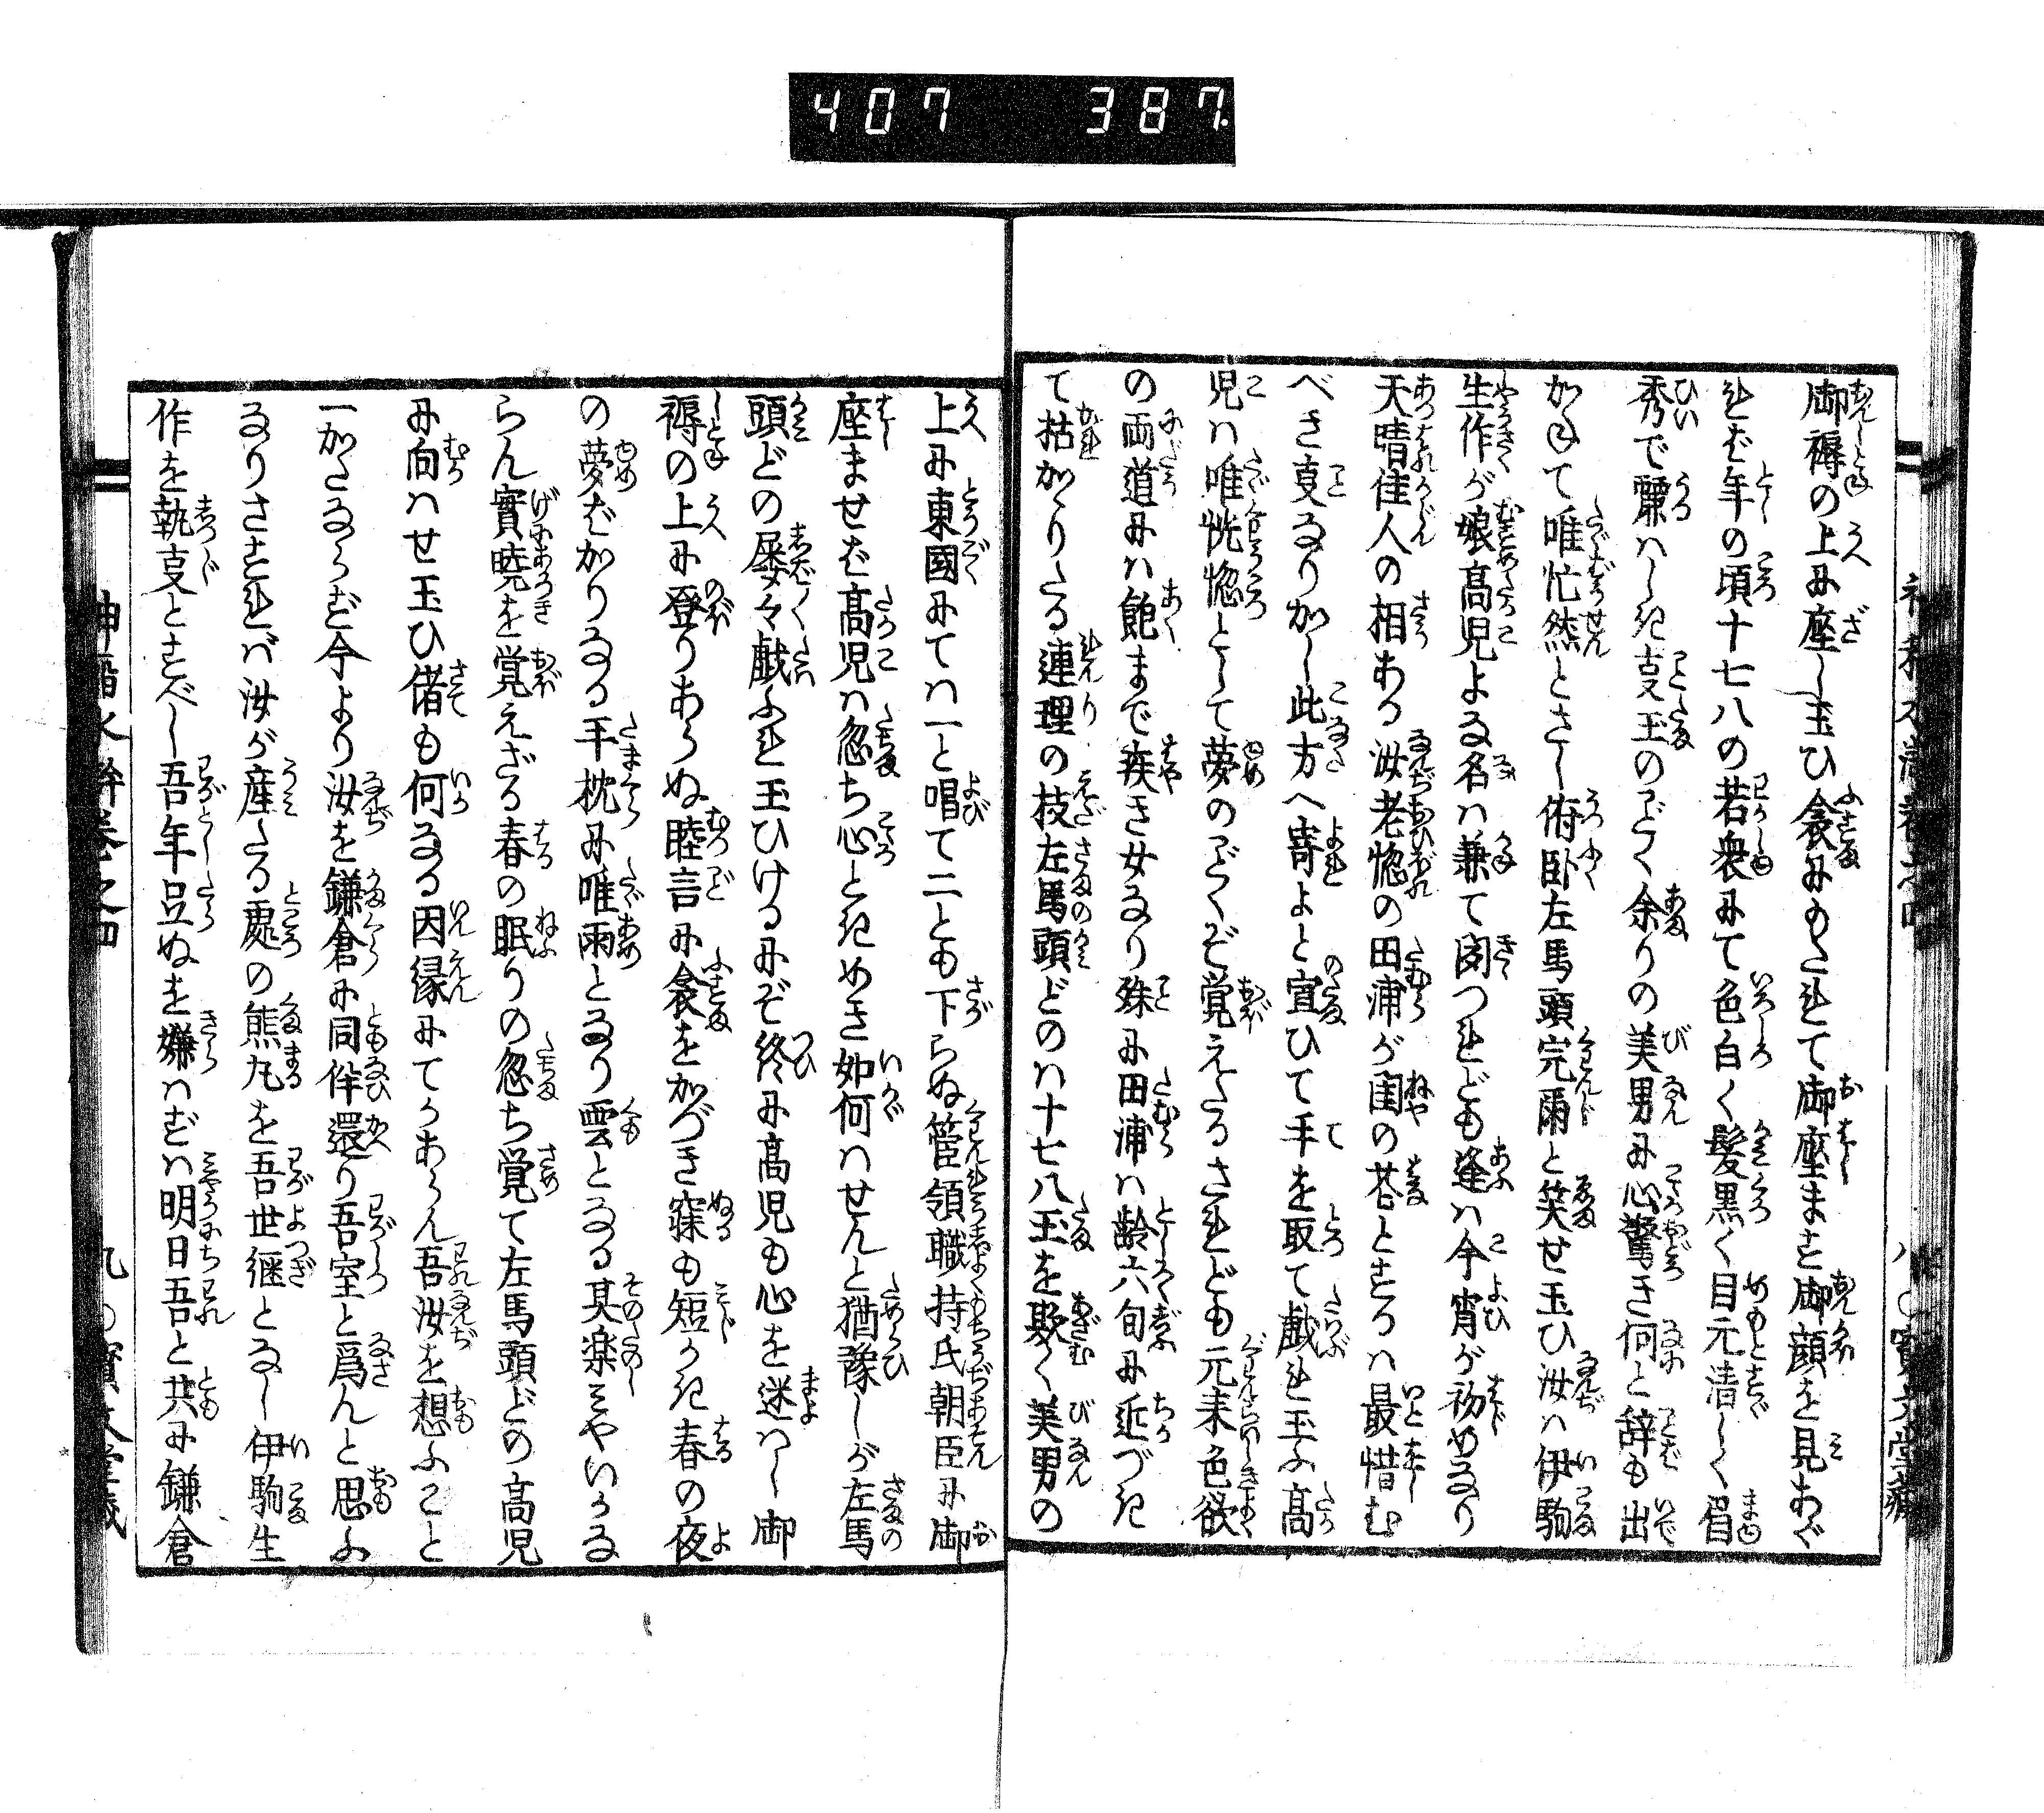 407 387.
御褥の上に座し玉ひ衾にもたれて御座ます御顔を見あぐ
れば年の頃十七八の若衆にて色白く髪黒く目元清しく眉
秀で麗はしき㕝玉のごとく余りの美男に心驚き何と辞も出
かねて唯忙然とさし俯臥左馬頭完雨と笑せ玉ひ汝は伊駒
生作が娘高児よな名は兼て聞つれども逢は今宵が初めなり
天晴佳人の相ある汝老惚の田浦が閨の花とするは最惜む
べき㕝なりかし此方へ寄よと宣ひて手を取て戯れ玉ふ高
児は唯恍惚として夢のごとくぞ覚えたるされども元来色欲
の両道には飽まで疾き女なり殊に田浦は齢六旬に近づき
て枯かゝりたる連理の枝左馬頭どのは十七八玉を欺く美男の
上に東國にては一と唱て二とも下らぬ管領職持氏朝臣に御
座ませば高児は忽ち心ときめき如何はせんと猶豫しが左馬
頭どの屡々戯ふれ玉ひけるにぞ終に高児も心を迷はし御
褥の上に登りあらぬ睦言に衾をかづき寐も短き春の夜
の夢ばかりなる手枕に唯雨となり雲となる其楽みやいかな
らん實暁を覚えざる春の眠りの忽ち覚て左馬頭どの高児
に向はせ玉ひ偖も何なる因縁にてかあらん吾汝を想ふこと
一かたならず今より汝を鎌倉に同伴還り吾室と為んと思ふ
なりさすれバ汝が産たる處の熊丸を吾世継となし伊駒生
作を執㕝とすべし吾年足ぬを嫌はずは明日吾と共に鎌倉
巻之四
九